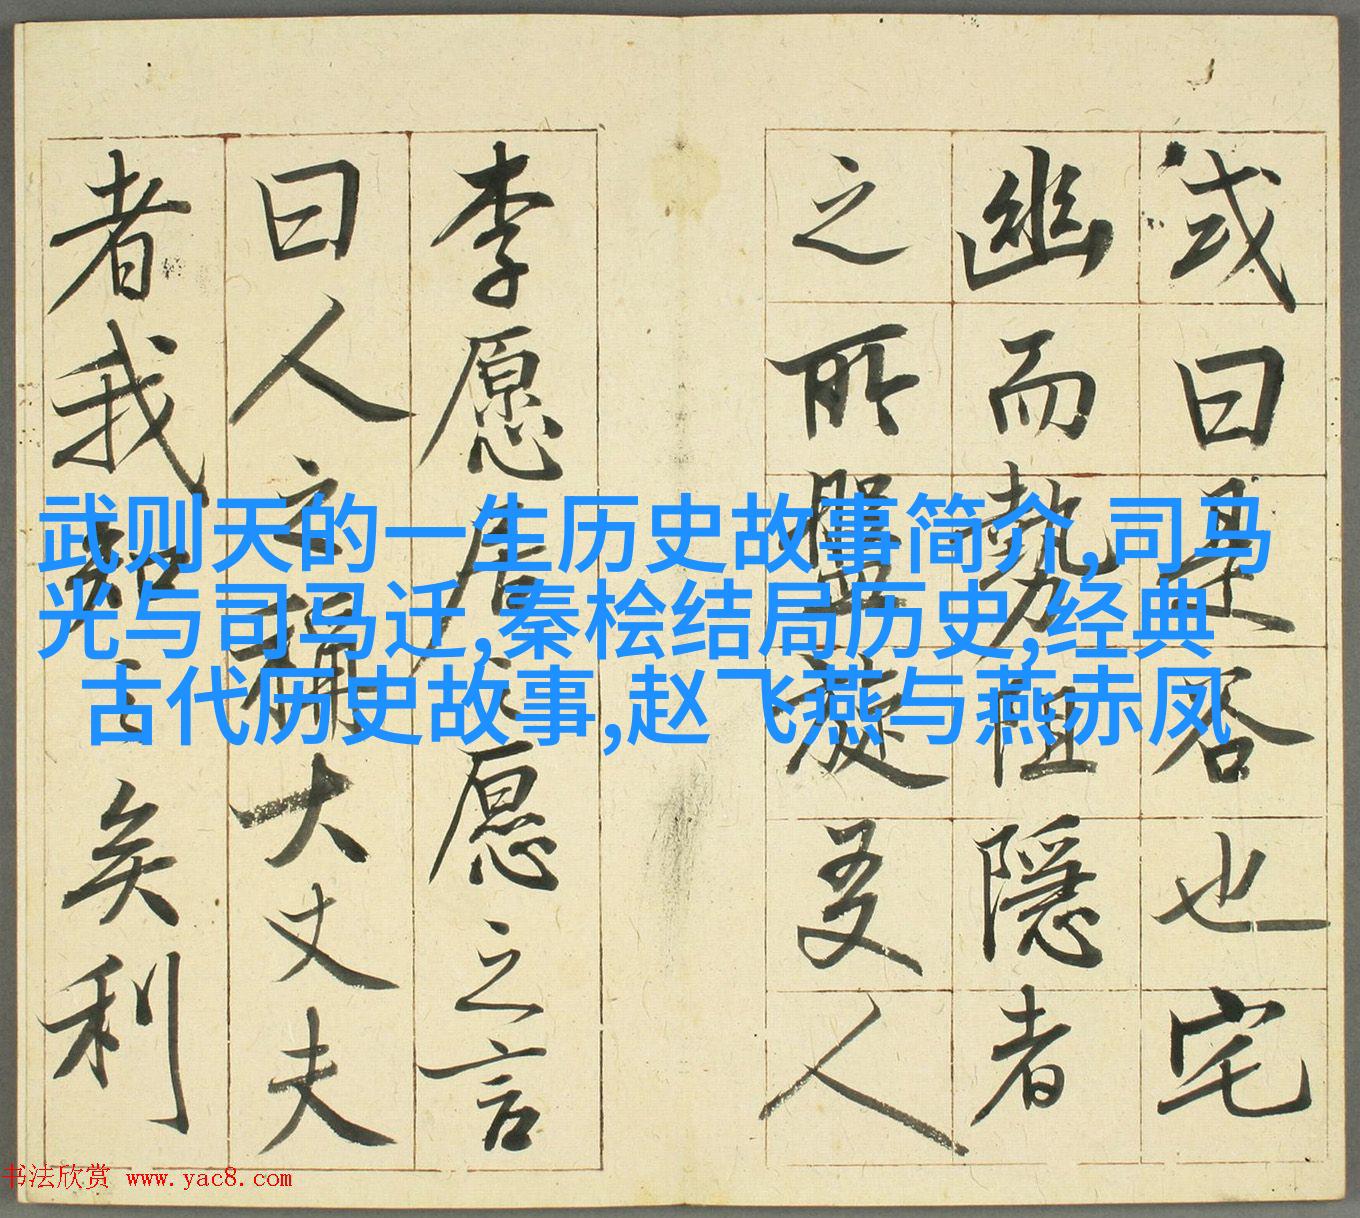 或曰是谷也宅
幽而勢阻隱者
之所盤旋友人
李愿居之愿之言
曰人之稱大丈夫
者我知之矣利
武则天的一生历史故事简介,司马
光与司马迁,秦桧结局历史,经典
古代历史故事,赵飞燕与燕赤凤
书法欣赏 www.yac8.com